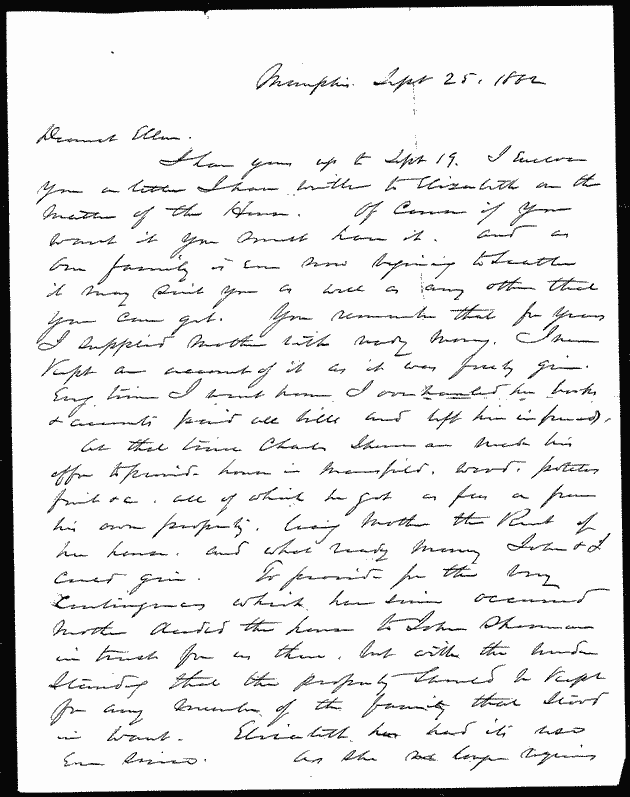 Memphis. Sept 25. 1862
Dearest Ellen.
I have yours up to Sept 19. I Enclose
you a letter I have written to Elizabeth on the
matter of the House. Of Course if you
want it you must have it. and as
our family is Even now beginning to scatter
it may suit you as well as any other that
you can get. You remember that for years
I supplied Mother with ready money. I never
Kept an account of it as it was freely given.
Every time I went home I overhauled her books
& accounts paid all bills and left her in funds.
At that time Charles Sherman made his
offer to provide house in Mansfield. wood. potatoes
fruit &c. all of which he got as free as from
his own property. leaving Mother the Rent of
her house. and what ready money John & I
could give. To provide for the very
Contingency which has since occurred
Mother deeded the house to John Sherman
in trust for us three. but with the under
standing that the property should be Kept
for any member of the family that stood
in want. Elizabeth has had its use
Ever since. As she no longer requires